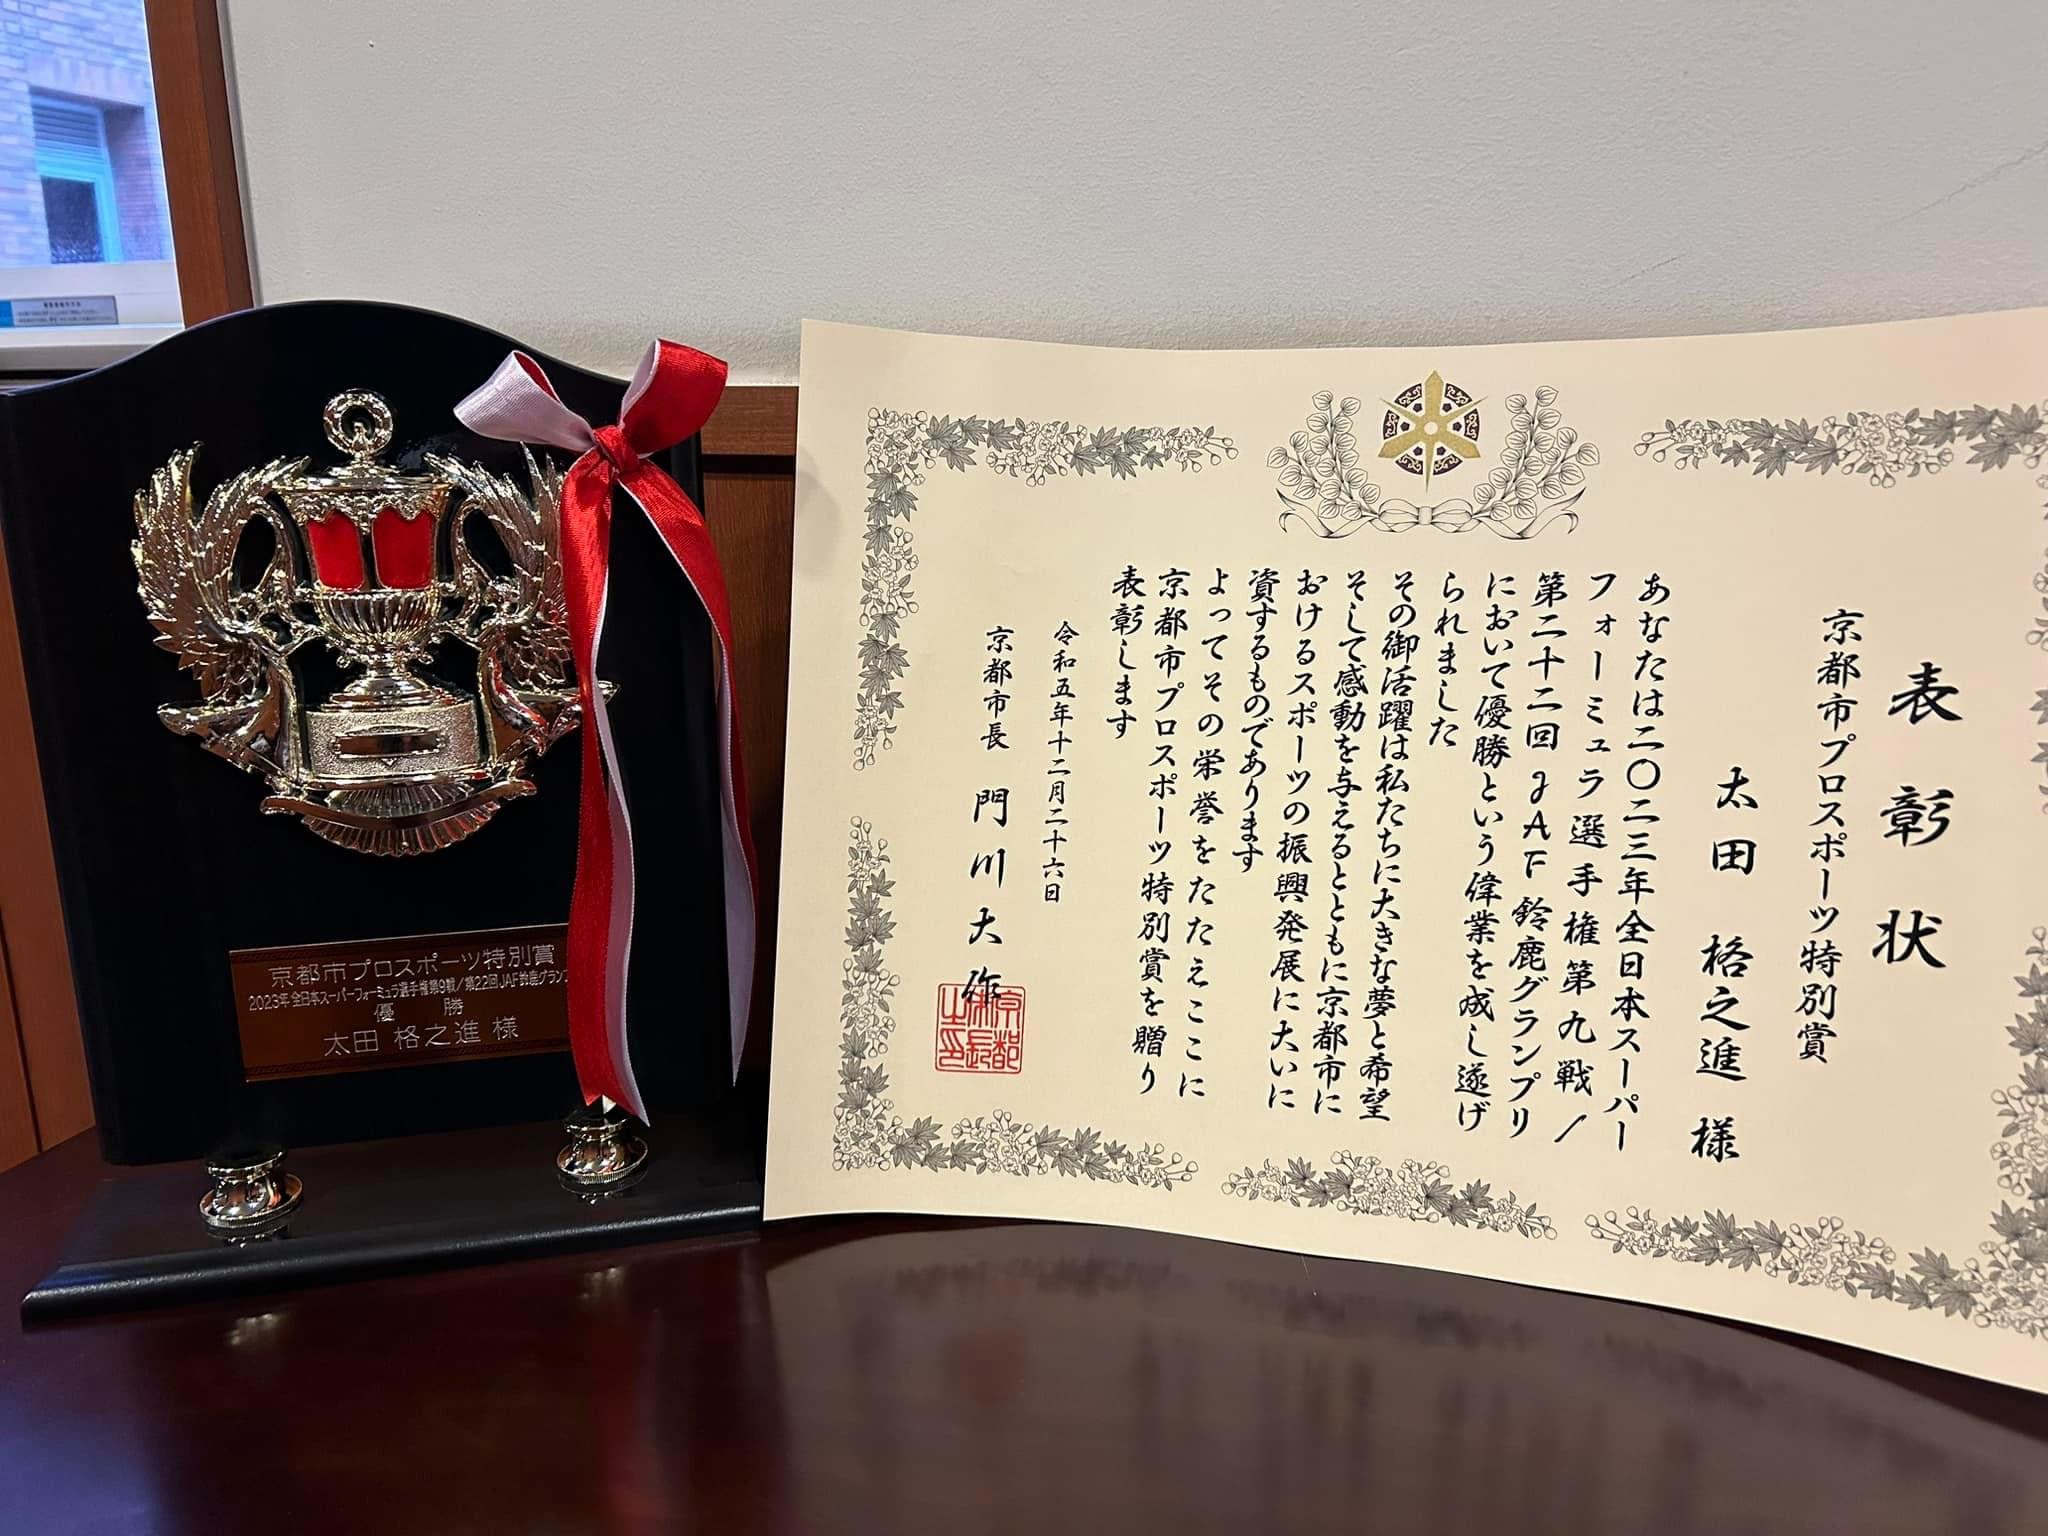 京都市プロスポーツ特別賞
2023年全日本スーパーフォーミュラ選手権第9戦/第22回JAF鈴鹿グランプ
優 勝
太田 格之進 様
表彰状
京都市プロスポーツ特別賞
太田 格之進 様
あなたは二〇二三年全日本スーパー
フォーミュラ選手権第九戦/
第二十二回JAF鈴鹿グランプリ
において優勝という偉業を成し遂げ
られました
その御活躍は私たちに大きな夢と希望
そして感動を与えるとともに京都市に
おけるスポーツの振興発展に大いに
資するものであります
よってその栄誉をたたえここに
京都市プロスポーツ特別賞を贈り
表彰します
令和五年十二月二十六日
京都市長 門川大作
京都市長之印